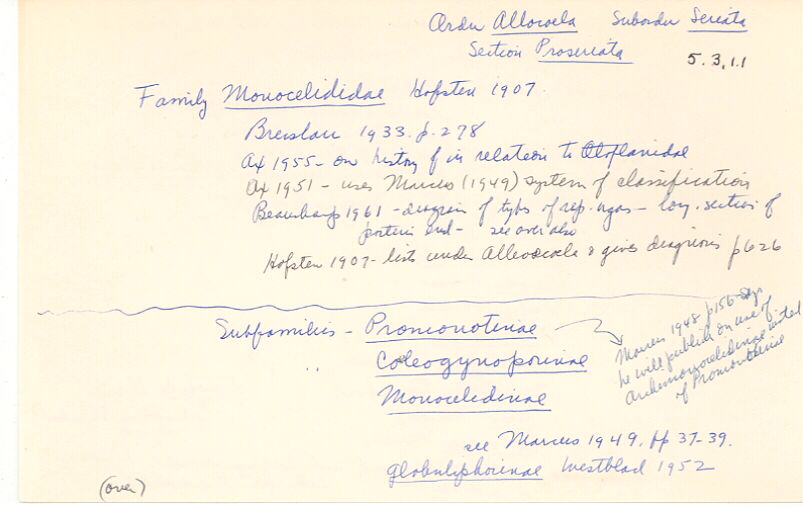 Order Allocoela Suborder Seriata
Section Proseriata 5.3.1.1
Family Monocelididae Hofsten 1907.
Breslau 1933. p. 278
Ax 1955 - on history of in relation to Otoplanidae
Ax 1951 - uses Marcus (1949) system of classification
Beauchamp 1961 - diagram of type of rep. organs - long. section of
posterior end - see over also
Hofsten 1907 - lists under Alloeocoela & gives diagnosis p 626
Subfamilies - Promonotinae
Coelogynoporinae
Monocelidinae
Marcus 1948 p156 says
he will publish on use of
Archimonocelidinae instead
of Promonotinae
see Marcus 1949. pp 37-39.
Westblad 1952
(over)